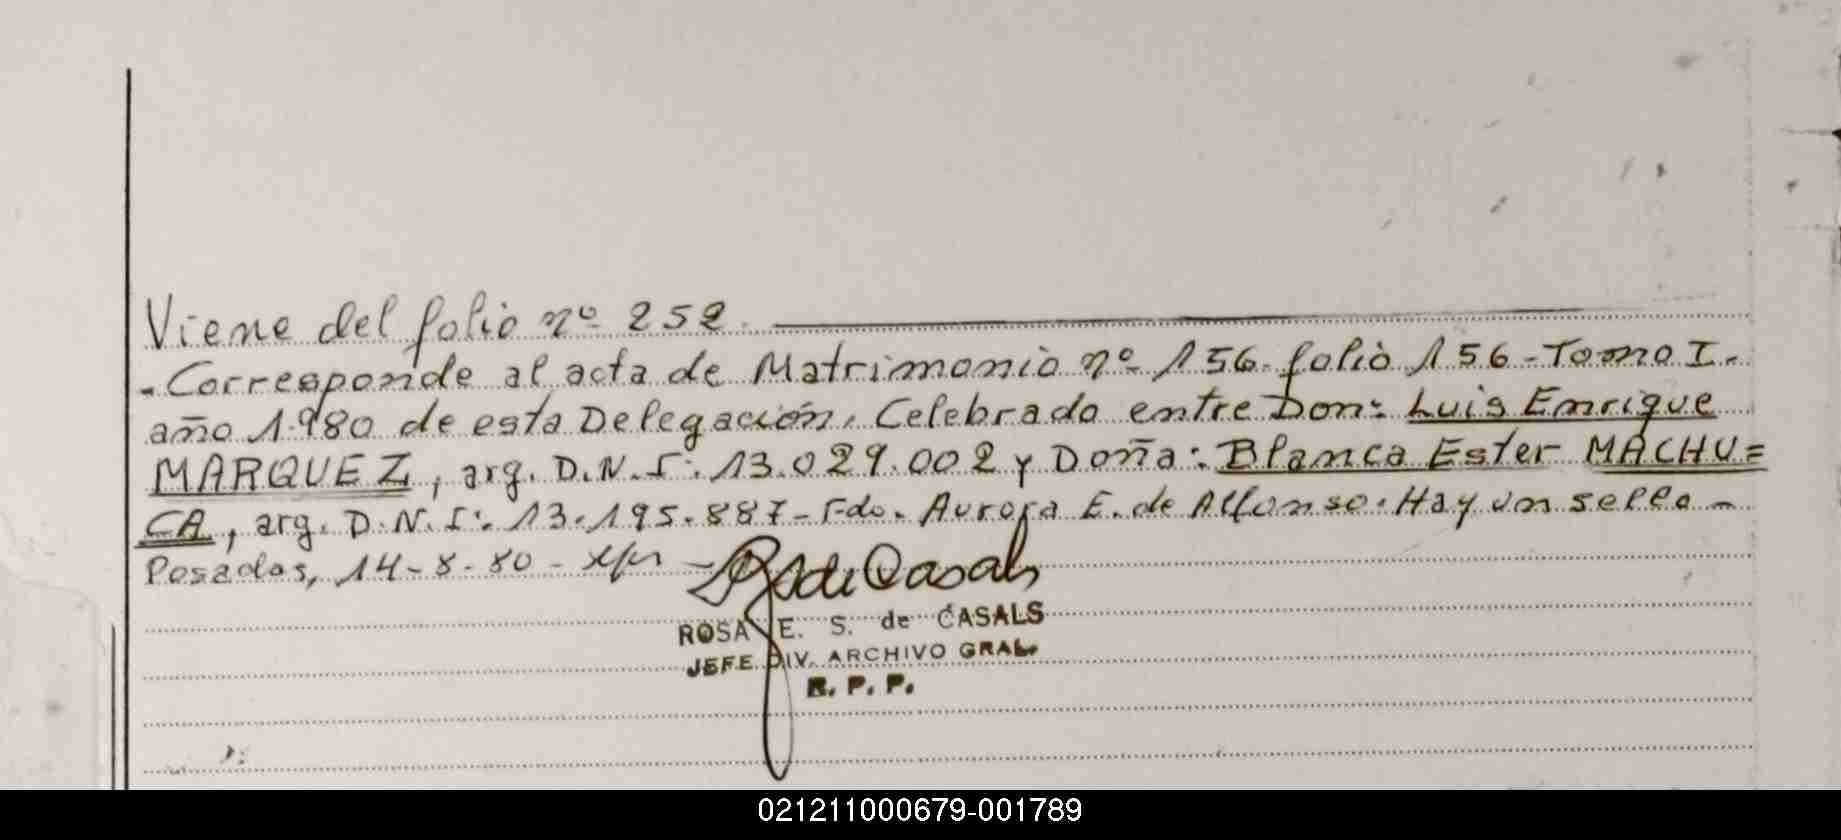 Viene del folio nº 252.
-Corresponde al acta de Matrimonio nº 156-folio 156-Tomo I-
año 1.980 de esta Delegación, Celebrado entre Don: Luis Enrique
MARQUEZ, arg. D.N.I: 13.029.002 y Doña: Blanca Ester MACHU=
CA, arg. D.N.I: 13.195.887- Fdo. Aurora E. de Alfonso. Hay un sello-
Posadas, 14-8-80-
ROSA E. S. de CASALS
JEFE DIV. ARCHIVO GRAL.
R. P. P.
021211000679-001789